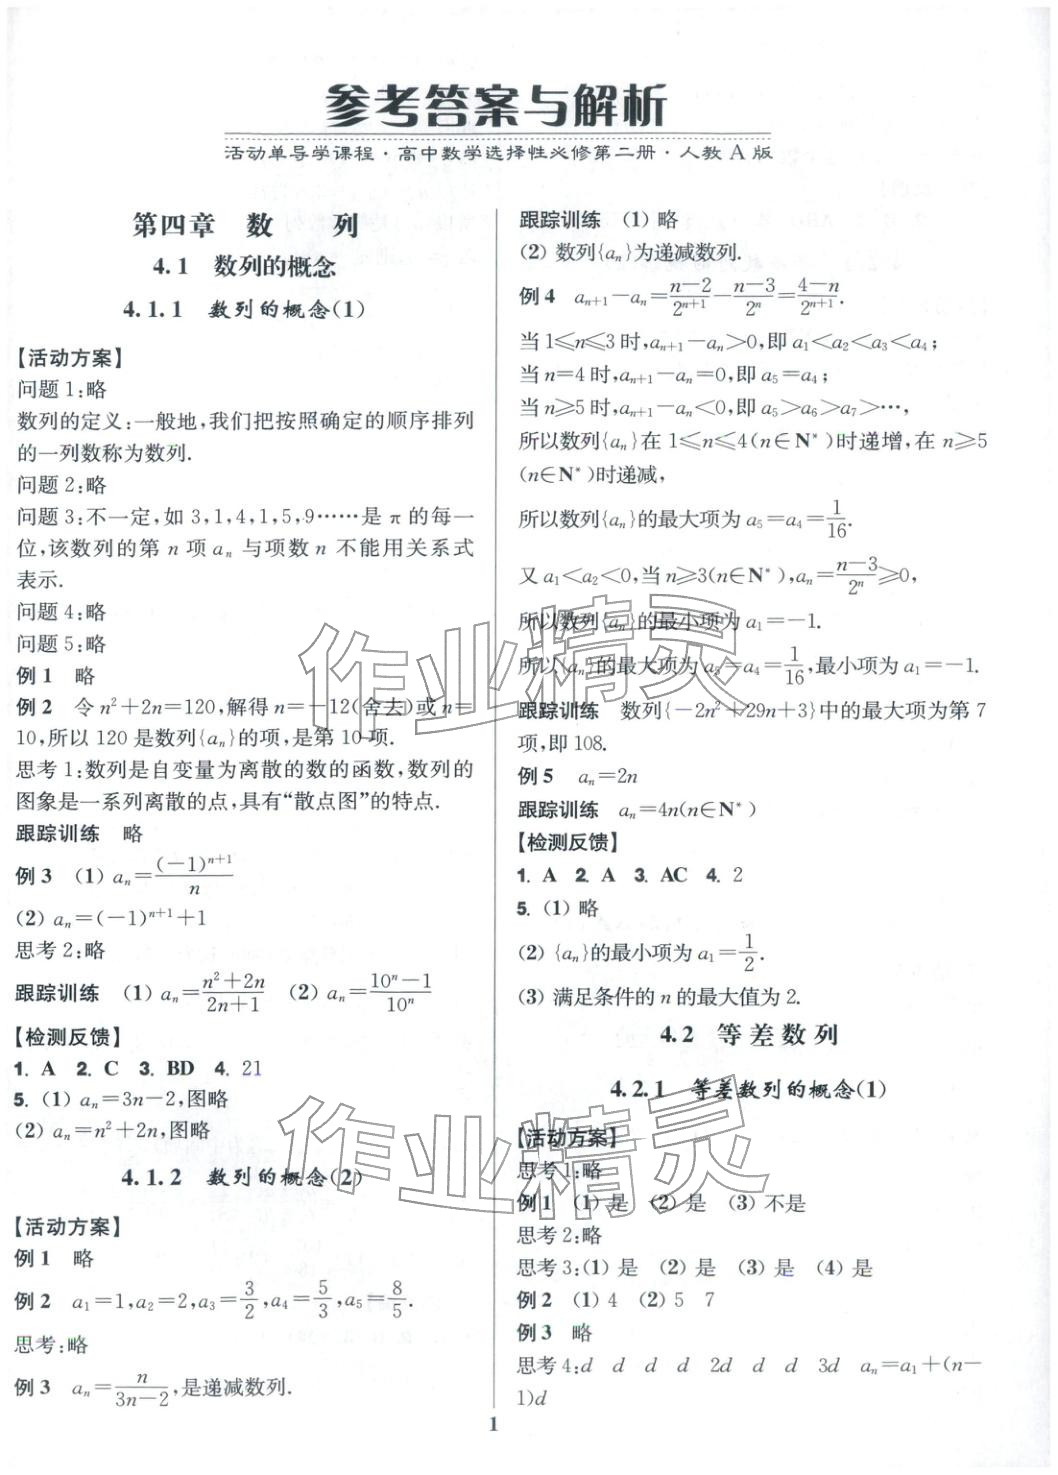 参考答案与解析
活动单导学课程·高中数学选择性必修第二册·人教 A 版
第四章 数 列
4.1 数列的概念
4.1.1 数列的概念(1)
【活动方案】
问题 1:略
数列的定义:一般地,我们把按照确定的顺序排列
的一列数称为数列.
问题 2:略
问题 3:不一定,如 3,1,4,1,5,9……是 π 的每一
位,该数列的第 n 项 aₙ 与项数 n 不能用关系式
表示.
问题 4:略
问题 5:略
例 1 略
例 2 令 n²+2n=120,解得 n=-12(舍去)或 n=
10,所以 120 是数列{aₙ}的项,是第 10 项.
思考 1:数列是自变量为离散的数的函数,数列的
图象是一系列离散的点,具有“散点图”的特点.
跟踪训练 略
例 3 (1) aₙ=(-1)ⁿ⁺¹/n
(2) aₙ=(-1)ⁿ⁺¹+1
思考 2:略
跟踪训练 (1) aₙ=(n²+2n)/(2n+1) (2) aₙ=(10ⁿ-1)/10ⁿ
【检测反馈】
1. A 2. C 3. BD 4. 21
5. (1) aₙ=3n-2,图略
(2) aₙ=n²+2n,图略
4.1.2 数列的概念(2)
【活动方案】
例 1 略
例 2 a₁=1,a₂=2,a₃=3/2,a₄=5/3,a₅=8/5.
思考:略
例 3 aₙ=n/(3n-2),是递减数列.
跟踪训练 (1) 略
(2) 数列{aₙ}为递减数列.
例 4 aₙ₊₁-aₙ=(n-2)/2ⁿ⁺¹-(n-3)/2ⁿ=(4-n)/2ⁿ⁺¹.
当 1≤n≤3 时,aₙ₊₁-aₙ>0,即 a₁<a₂<a₃<a₄;
当 n=4 时,aₙ₊₁-aₙ=0,即 a₅=a₄;
当 n≥5 时,aₙ₊₁-aₙ<0,即 a₅>a₆>a₇>…,
所以数列{aₙ}在 1≤n≤4(n∈N*)时递增,在 n≥5
(n∈N*)时递减,
所以数列{aₙ}的最大项为 a₅=a₄=1/16.
又 a₁<a₂<0,当 n≥3(n∈N*),aₙ=(n-3)/2ⁿ≥0,
所以数列{aₙ}的最小项为 a₁=-1.
所以{aₙ}的最大项为 a₅=a₄=1/16,最小项为 a₁=-1.
跟踪训练 数列{-2n²+29n+3}中的最大项为第 7
项,即 108.
例 5 aₙ=2n
跟踪训练 aₙ=4n(n∈N*)
【检测反馈】
1. A 2. A 3. AC 4. 2
5. (1) 略
(2) {aₙ}的最小项为 a₁=1/2.
(3) 满足条件的 n 的最大值为 2.
4.2 等差数列
4.2.1 等差数列的概念(1)
【活动方案】
思考 1:略
例 1 (1) 是 (2) 是 (3) 不是
思考 2:略
思考 3:(1) 是 (2) 是 (3) 是 (4) 是
例 2 (1) 4 (2) 5 7
例 3 略
思考 4:d d d d 2d d d 3d aₙ=a₁+(n-
1)d
1
作业精灵
作业精灵